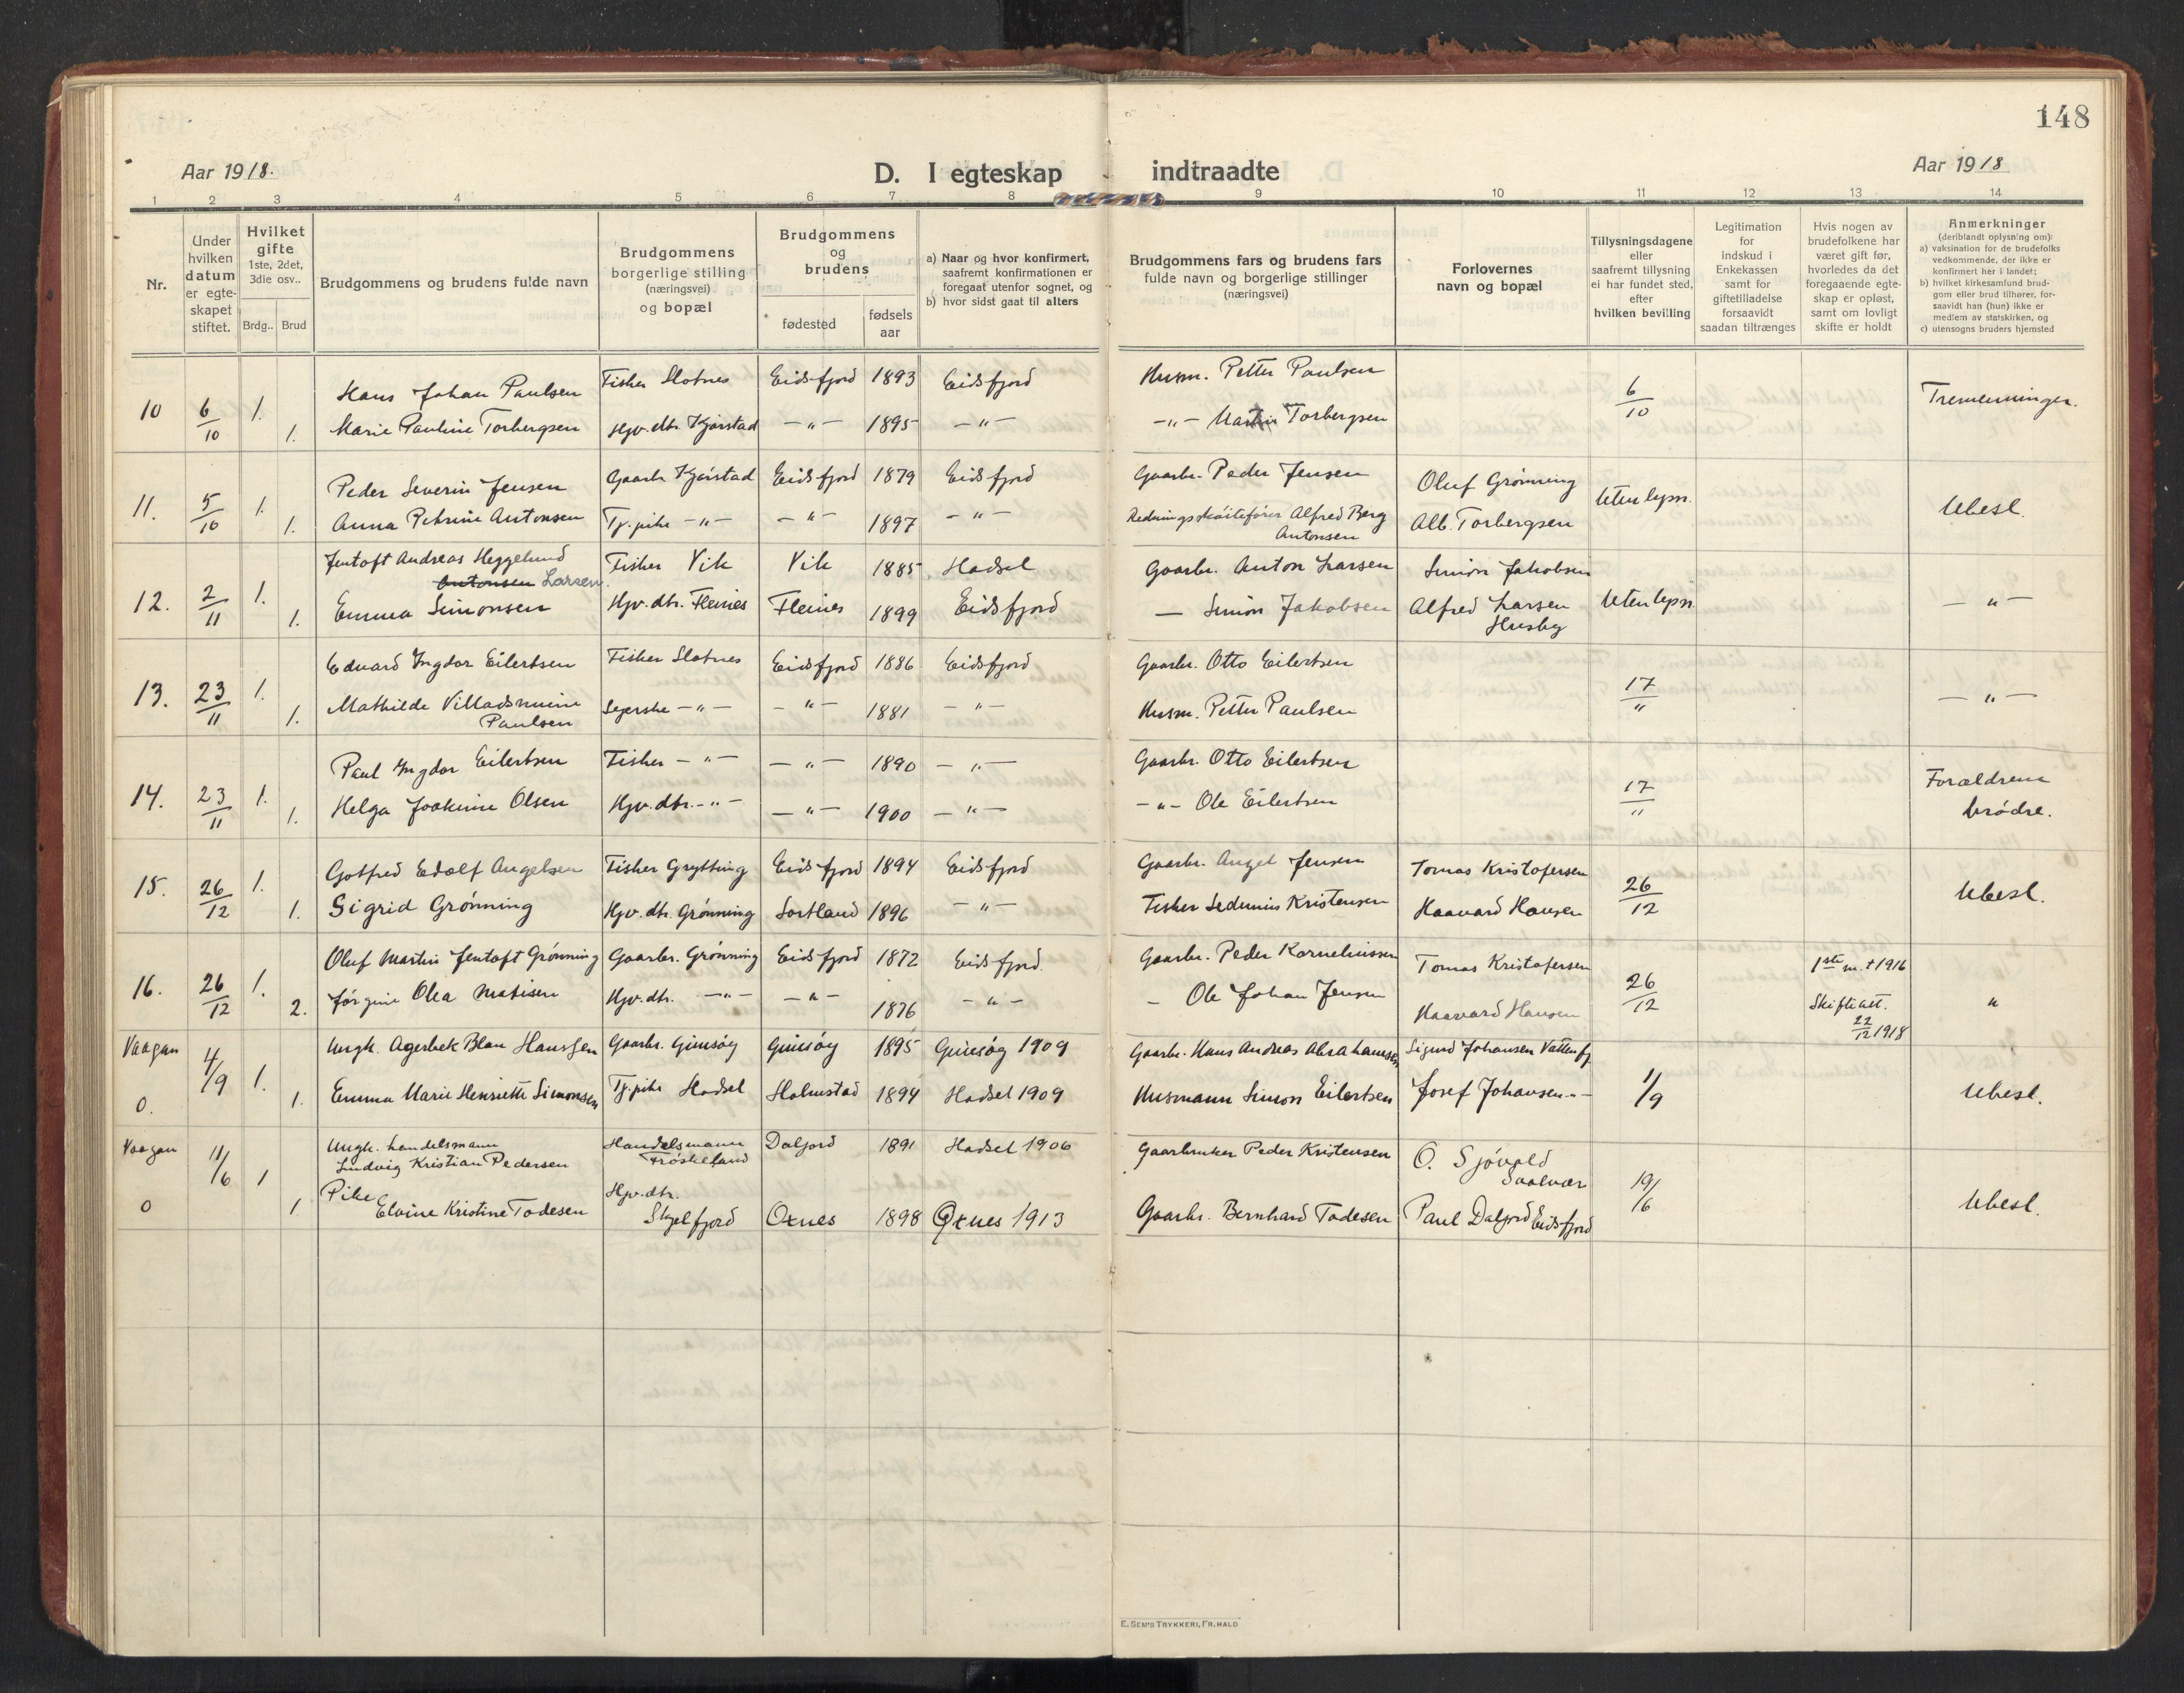 148
Aar 1918.
D. I egteskap indtraadte
Aar 1918
1 2 3 4 5 6 7 8 9 10 11 12 13 14
Nr.
Under hvilken datum er egte-skapet stiftet.
Hvilket gifte 1ste, 2det, 3die osv..
Brdg.. Brud
Brudgommens og brudens fulde navn
Brudgommens borgerlige stilling (næringsvei) og bopæl
Brudgommens og brudens
fødested
fødsels aar
a) Naar og hvor konfirmert, saafremt konfirmationen er foregaat utenfor sognet, og
b) hvor sidst gaat til alters
Brudgommens fars og brudens fars fulde navn og borgerlige stillinger (næringsvei)
Forlovernes navn og bopæl
Tillysningsdagene eller saafremt tillysning ei har fundet sted, efter hvilken bevilling
Legitimation for indskud i Enkekassen samt for giftetilladelse forsaavidt saadan tiltrænges
Hvis nogen av brudefolkene har været gift før, hvorledes da det foregaaende egte-skap er opløst, samt om lovligt skifte er holdt
Anmerkninger (deriblandt oplysning om):
a) vaksination for de brudefolks vedkommende, der ikke er konfirmert her i landet;
b) hvilket kirkesamfund brud-gom eller brud tilhører, for-saavidt han (hun) ikke er medlem av statskirken, og
c) utensogns bruders hjemsted
10 6/10 1. Hans Johan Paulsen Fisker Slotnes Eidsfjord 1893 Eidsfjord Husm. Petter Paulsen 6/10 Tremenninger.
1. Marie Pauline Torbergsen Hjv. dtr. Kjørstad —"— 1895 —"— —"— Martin Torbergsen
11. 5/10 1. Peder Severin Jensen Gaarbr Kjørstad Eidsfjord 1879 Eidsfjord Gaarbr. Peder Jensen Oluf Grønning Uten lysn. Ubesl.
1. Anna Petrine Antonsen Tj.pike —"— —"— 1897 —"— Redningsskøitefører Alfred Berg Antonsen Alb. Torbergsen
12. 2/11 1. Jentoft Andreas Heggelund Antonsen Larsen. Fisker Vik Vik 1885 Hadsel Gaarbr. Anton Larsen Simon Jakobsen Uten lysn —"—
1. Emma Simonsen Hjv. dtr. Fleines Fleines 1899 Eidsfjord — Simon Jakobsen Alfred Larsen Husby
13. 23/11 1. Edvard Ingdor Eilertsen Fisker Slotnes Eidsfjord 1886 Eidsfjord Gaarbr. Otto Eilertsen 17/11 —"—
1. Mathilde Villadsmine Paulsen —"— —"— 1881 —"— Husm. Petter Paulsen
14. 23/11 1. Paul Ingdor Eilertsen Fisker —"— —"— 1890 —"— Gaarbr. Otto Eilertsen 17/11 Forældrene brødre.
1. Helga Joakime Olsen Hjv. dtr. —"— —"— 1900 —"— —"— Ole Eilertsen
15. 26/12 1. Gotfred Edolf Angelsen Fisker Grytting Eidsfjord 1894 Eidsfjord Gaarbr. Angel Jensen Tomas Kristofersen 26/12 Ubesl.
1. Sigrid Grønning Hjv. dtr. Grønning Sortland 1896 —"— Fisker Sedenius Kristensen Haavard Hansen
16. 26/12 1. Oluf Martin Jentoft Grønning Gaarbr. Grønning Eidsfjord 1872 Eidsfjord. Gaarbr. Peder Korneliussen Tomas Kristofersen 26/12 1ste m. † 1916 "
2. Jørgine Olea Matisen Hjv. dtr. —"— —"— 1876 —"— — Ole Johan Jensen Haavard Hansen Skifteatt. 22/12 1918
Vaagan 4/9 1. Ungk. Agerbek Blau Hanssen Gaarbr. Gimsøy Gimsøy 1895 Gimsøy 1909 Gaarbr. Hans Andreas Abrahamsen Sigurd Johansen Vatterfj. 1/9 Ubesl.
0. 1. Emma Marie Henriette Simonsen Tj.pike Hadsel Holmstad 1894 Hadsel 1909 Husmann Simon Eilertsen Josef Johansen —"—
Vaagan 11/6 1 Ungk. handelsmann Ludvig Kristian Pedersen Handelsmann Frøskeland Daljord 1891 Hadsel 1906 Gaarbruker Peder Kristensen O. Sjövold Svolvær 19/6 Ubesl.
0 1 Pike Elvine Kristine Todesen Hjv. dtr. Skjelfjord Oxnes 1898 Øxnes 1913 Gaarbr. Bernhard Todesen Paul Daljord Eidsfjord
E. Sem's Trykkeri, Fr.hald